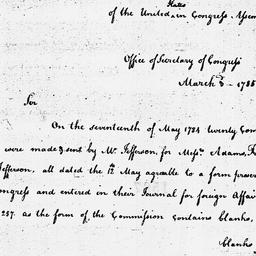 States
of the United, in Congress.
Office of Secretary of Congress
March 3 - 1785
Sir
On the seventeenth of May 1784 twenty Com
were made & sent by Mr. Jefferson, for Messrs. Adams, Fr
Jefferson, all dated the 12th May agreable to a form prescr
ongress and entered in their Journal for foreign Affai
237. as the form of the Commission contains blanks,
blanks